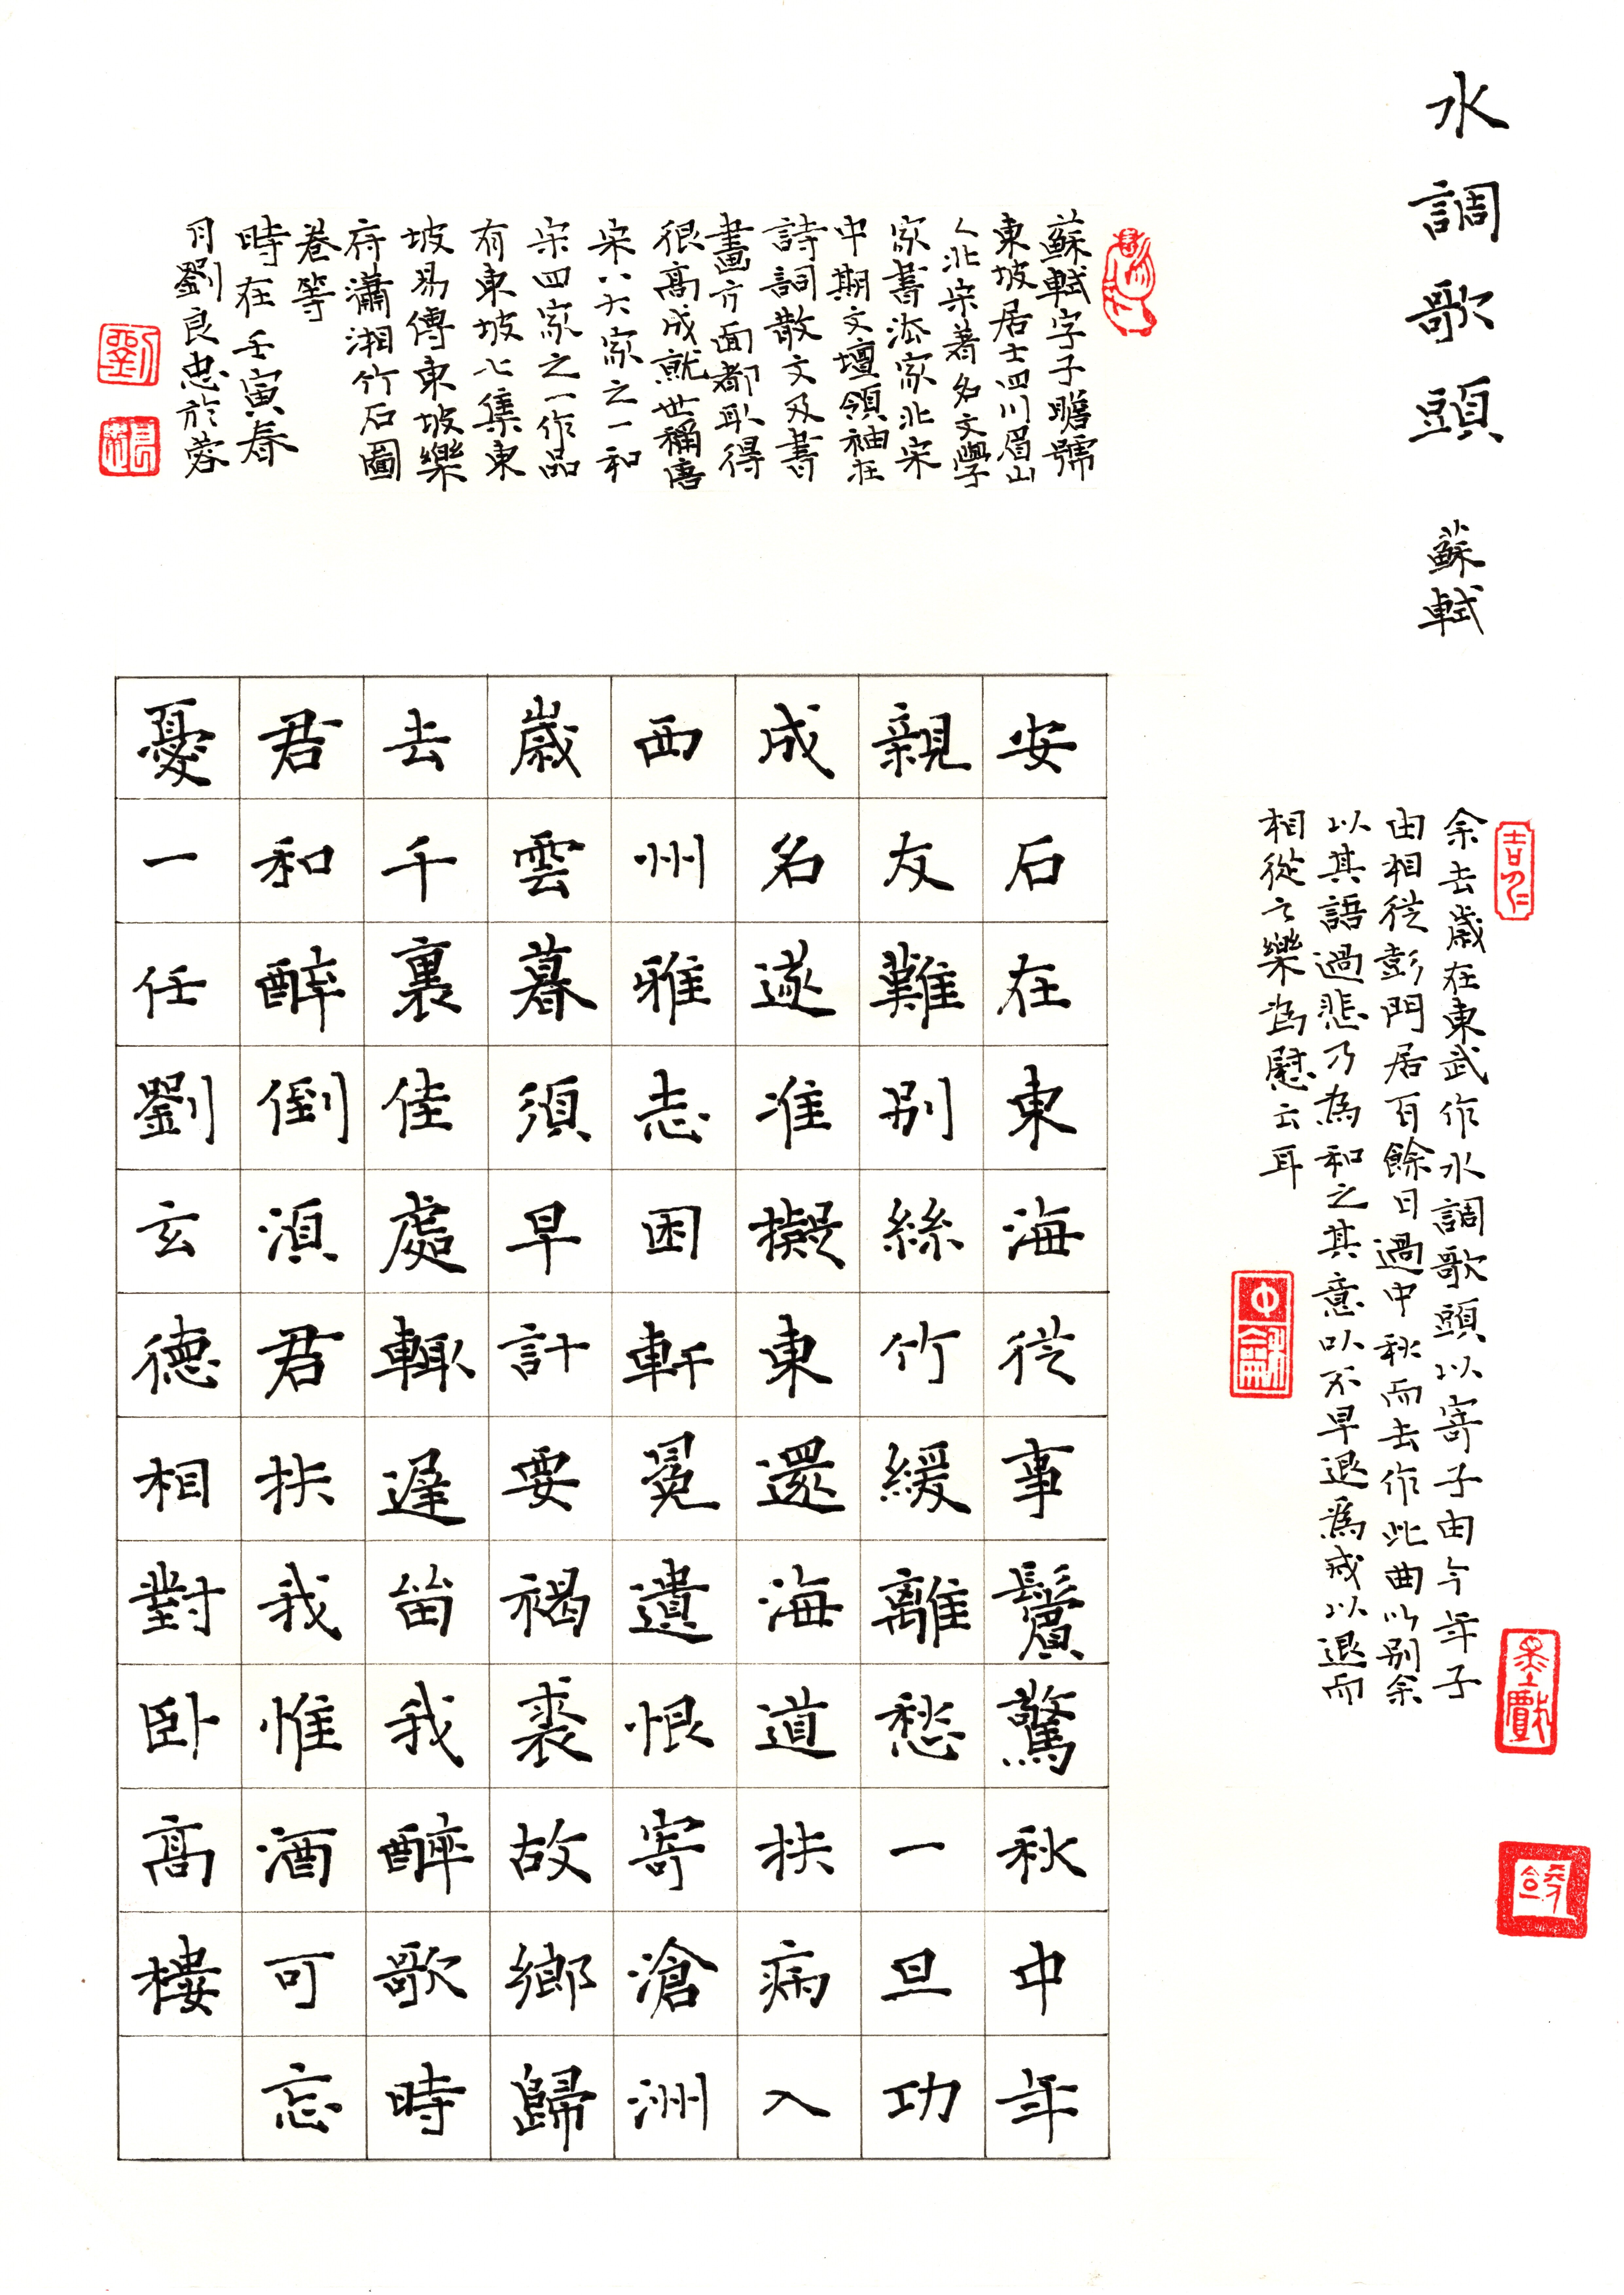 水調歌頭 蘇軾
余去歲在東武作水調歌頭以寄子由今年子
由相從彭門居百餘日過中秋而去作此曲以別余
以其語過悲乃為和之其意以不早退爲戒以退而
相從之樂爲慰云耳
安石在東海從事鬢驚秋中年
親友難別絲竹緩離愁一旦功
成名遂准擬東還海道扶病入
西州雅志困軒冕遺恨寄滄洲
歲雲暮須早計要褐裘故鄉歸
去千裏佳處輒遲留我醉歌時
君和醉倒須君扶我惟酒可忘
憂一任劉玄德相對卧高樓
蘇軾字子瞻號
東坡居士四川眉山
人北宋著名文學
家書法家北宋
中期文壇領袖在
詩詞散文及書
畫方面都取得
很高成就世稱唐
宋八大家之一和
宋四家之一作品
有東坡七集東
坡易傳東坡樂
府瀟湘竹石圖
卷等
時在壬寅春
月劉良忠於蓉
劉
墨戲